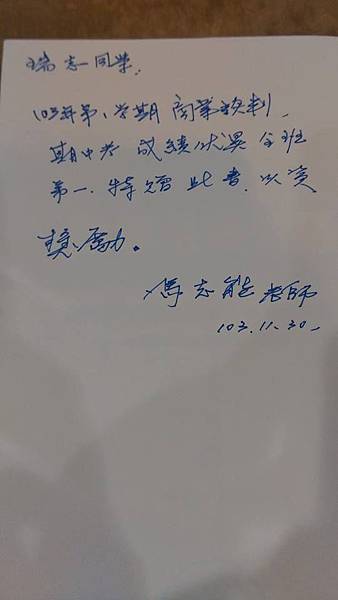 瑞志同學.
103年第1學期 商業談判.
期中考 成績優異 全班
第一. 特贈 此書. 以資
獎勵。
馮志能老師
103.11.30.